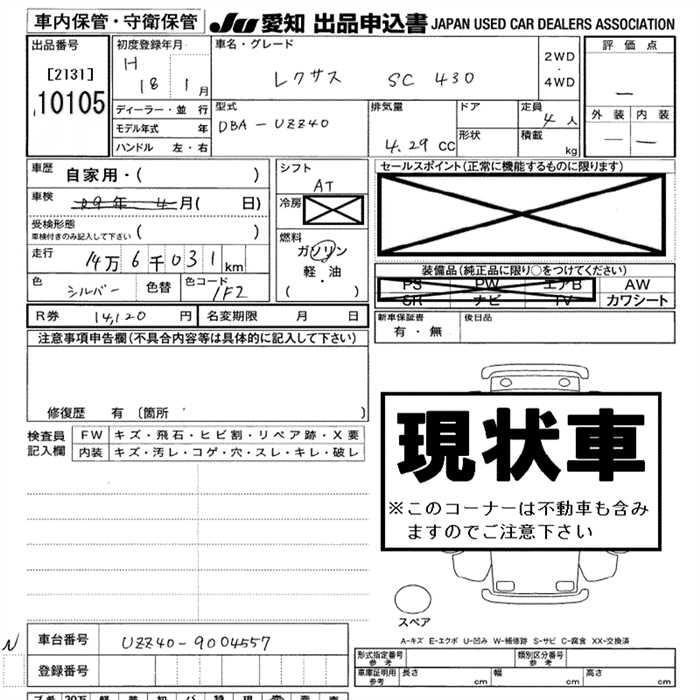 車内保管・守衛保管 JU 愛知 出品申込書 JAPAN USED CAR DEALERS ASSOCIATION
出品番号 初度登録年月 車名・グレード 2WD・4WD 評価点
[2131] H 18 1月 レクサス SC 430 —
10105 ディーラー・並行 型式 排気量 ドア 定員 外装 内装
モデル年式 年 DBA-UZZ40 4.29 CC 形状 4人 — —
ハンドル 左・右 積載 kg
車歴 自家用・( ) シフト AT セールスポイント(正常に機能するものに限ります)
車検 09年 4月( 日) 冷房
受検形態 ( )
車検付きのみ記入して下さい 燃料
走行 14万6千031km ガソリン
軽・油 装備品(純正品に限り○をつけてください)
色 シルバー 色替 色コード 1F2 ( ・ ) PS PW エアB AW
SR ナビ TV カワシート
R券 14,120円 名変期限 月 日 新車保証書 後日品
有・無
注意事項申告欄(不具合内容等は具体的に記入して下さい)
修復歴 有 〔箇所 〕
検査員 FW キズ・飛石・ヒビ割・リペア跡・X要
記入欄 内装 キズ・汚レ・コゲ・穴・スレ・キレ・破レ
現状車
※このコーナーは不動車も含み
ますのでご注意下さい
スペア
A-キズ E-エクボ U-凹み W-補修跡 S-サビ C-腐食 XX-交換済
N 車台番号 UZZ40-9004557
登録番号
形式指定番号 参考 類別区分番号 参考
車庫証明用 参考 長さ cm 幅 cm 高さ cm